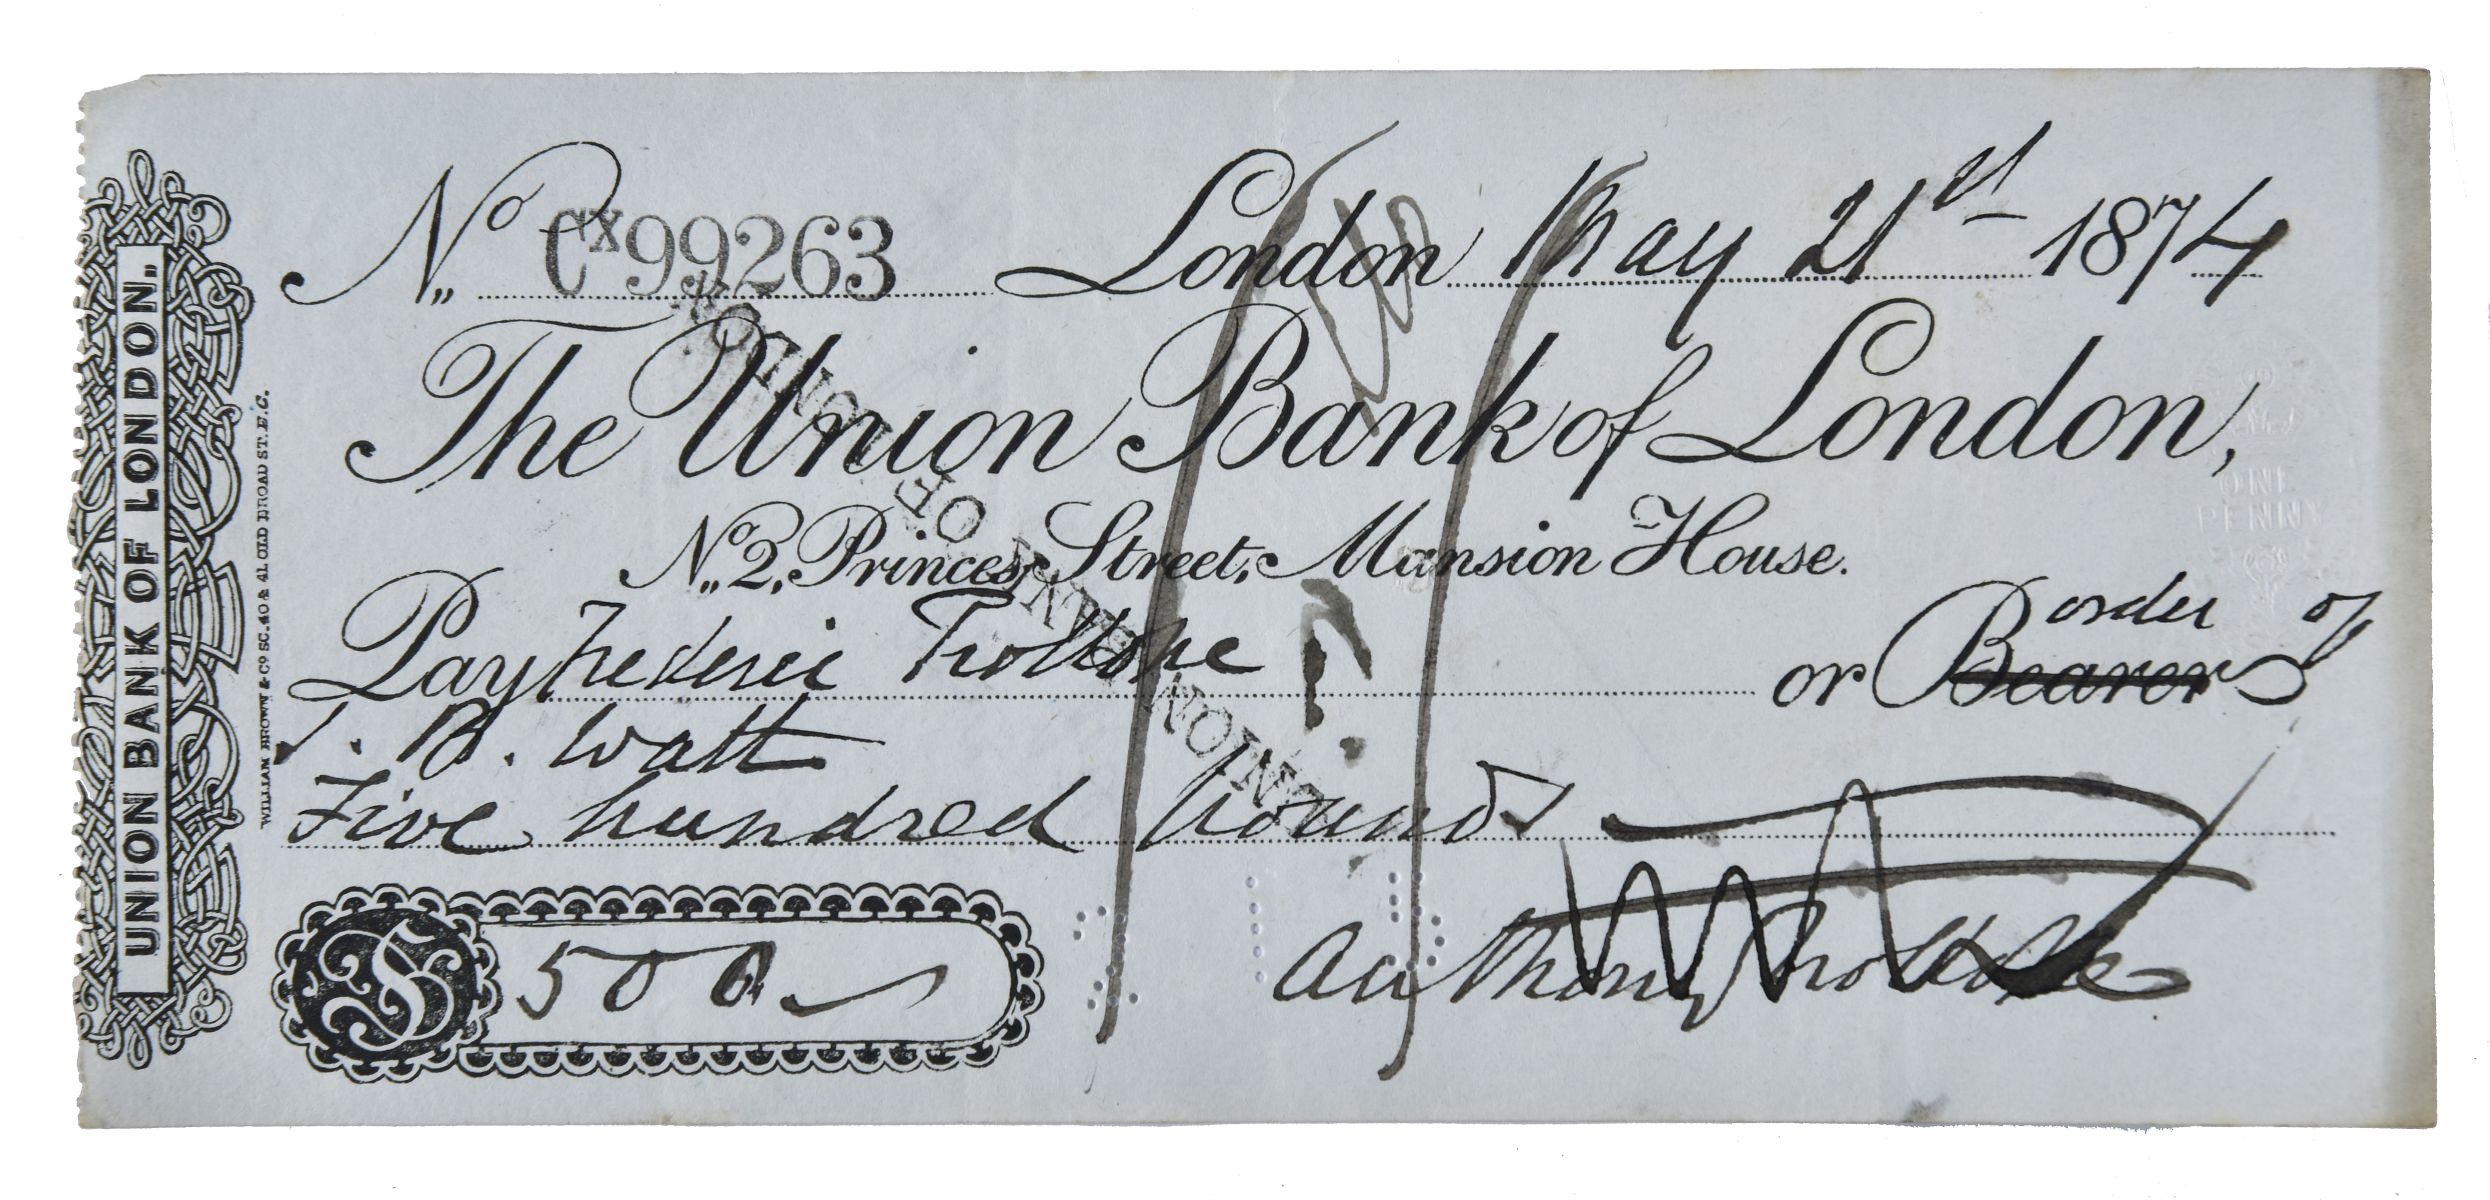 UNION BANK OF LONDON.
WILLIAM BROWN & Co SC. 40 & 41 OLD BROAD ST. E.C.
No. Cx99263 London May 21st 1874
The Union Bank of London,
No. 2, Princes Street, Mansion House.
ONE PENNY
Pay Frederic Trollope or Bearer order of
J. B. Watt
Five hundred pounds
£ 500
Anthony Trollope
UNION BANK OF LONDON